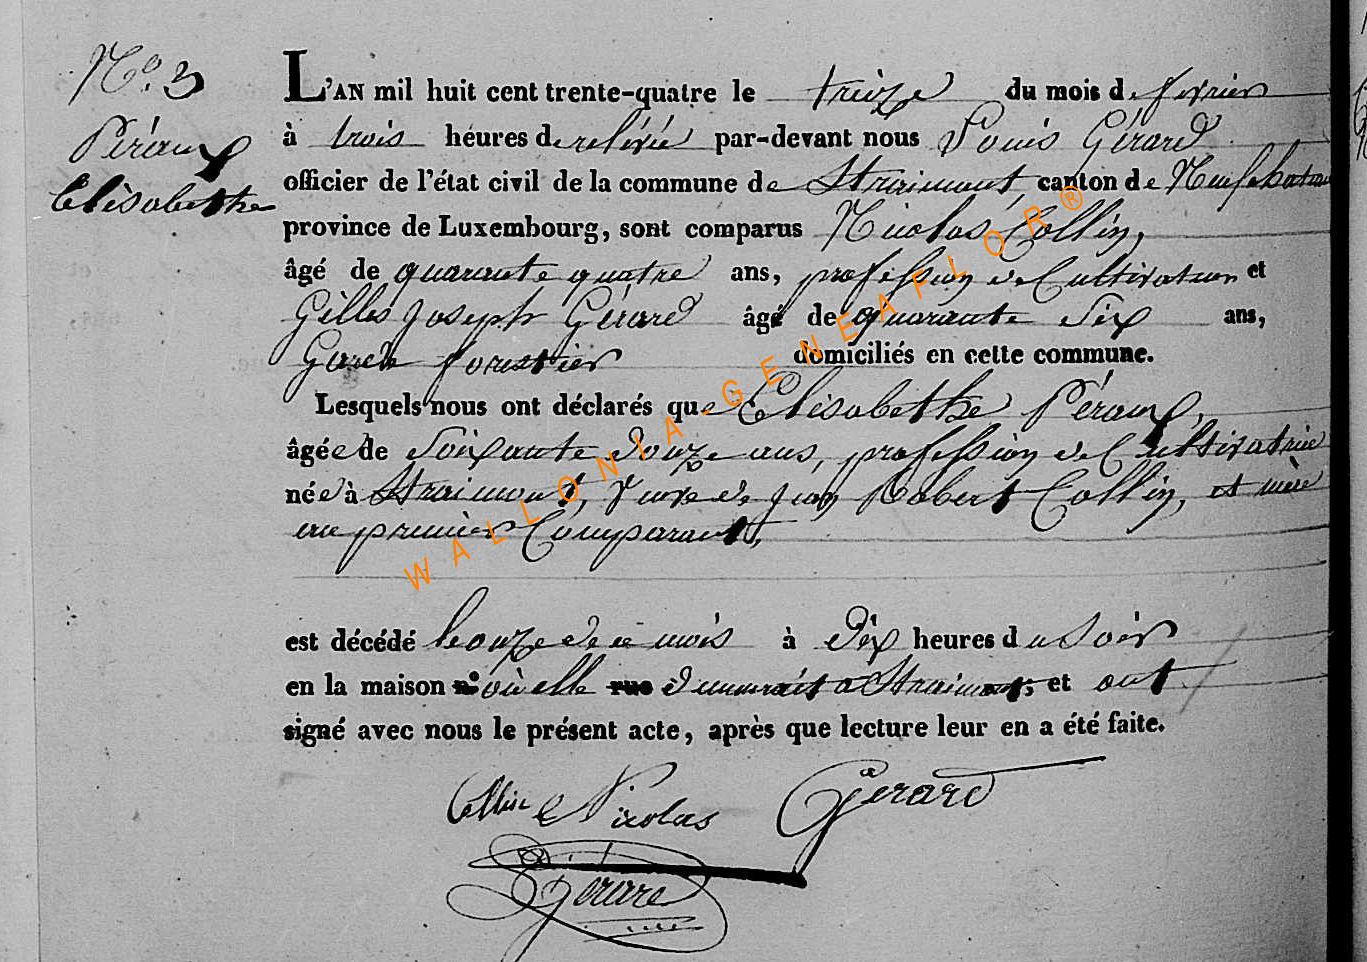 No. 3
Péraux
Elisabethe
L'AN mil huit cent trente-quatre le treize du mois de fevrier
à trois heures de relévée par-devant nous Louis Gérard
officier de l'état civil de la commune de Straimont, canton de Neufchateau
province de Luxembourg, sont comparus Nicolas Collin,
âgé de quarante quatre ans, profession de Cultivateur et
Gilles Joseph Gérard âgé de quarante Six ans,
Garde forestier domiciliés en cette commune.
Lesquels nous ont déclarés que Elisabethe Péraux,
âgée de Soixante douze ans, profession de Cultivatrice
née à Straimont, Veuve de Jean Robert Collin, et mère
au premier Comparant,
est décédé le onze de ce mois à Dix heures du Soir
en la maison n° où elle rue demeurait à Straimont, et ont
signé avec nous le présent acte, après que lecture leur en a été faite.
Collin Nicolas Gérard
Gérard
WALLONIA-GENEAFLOR®